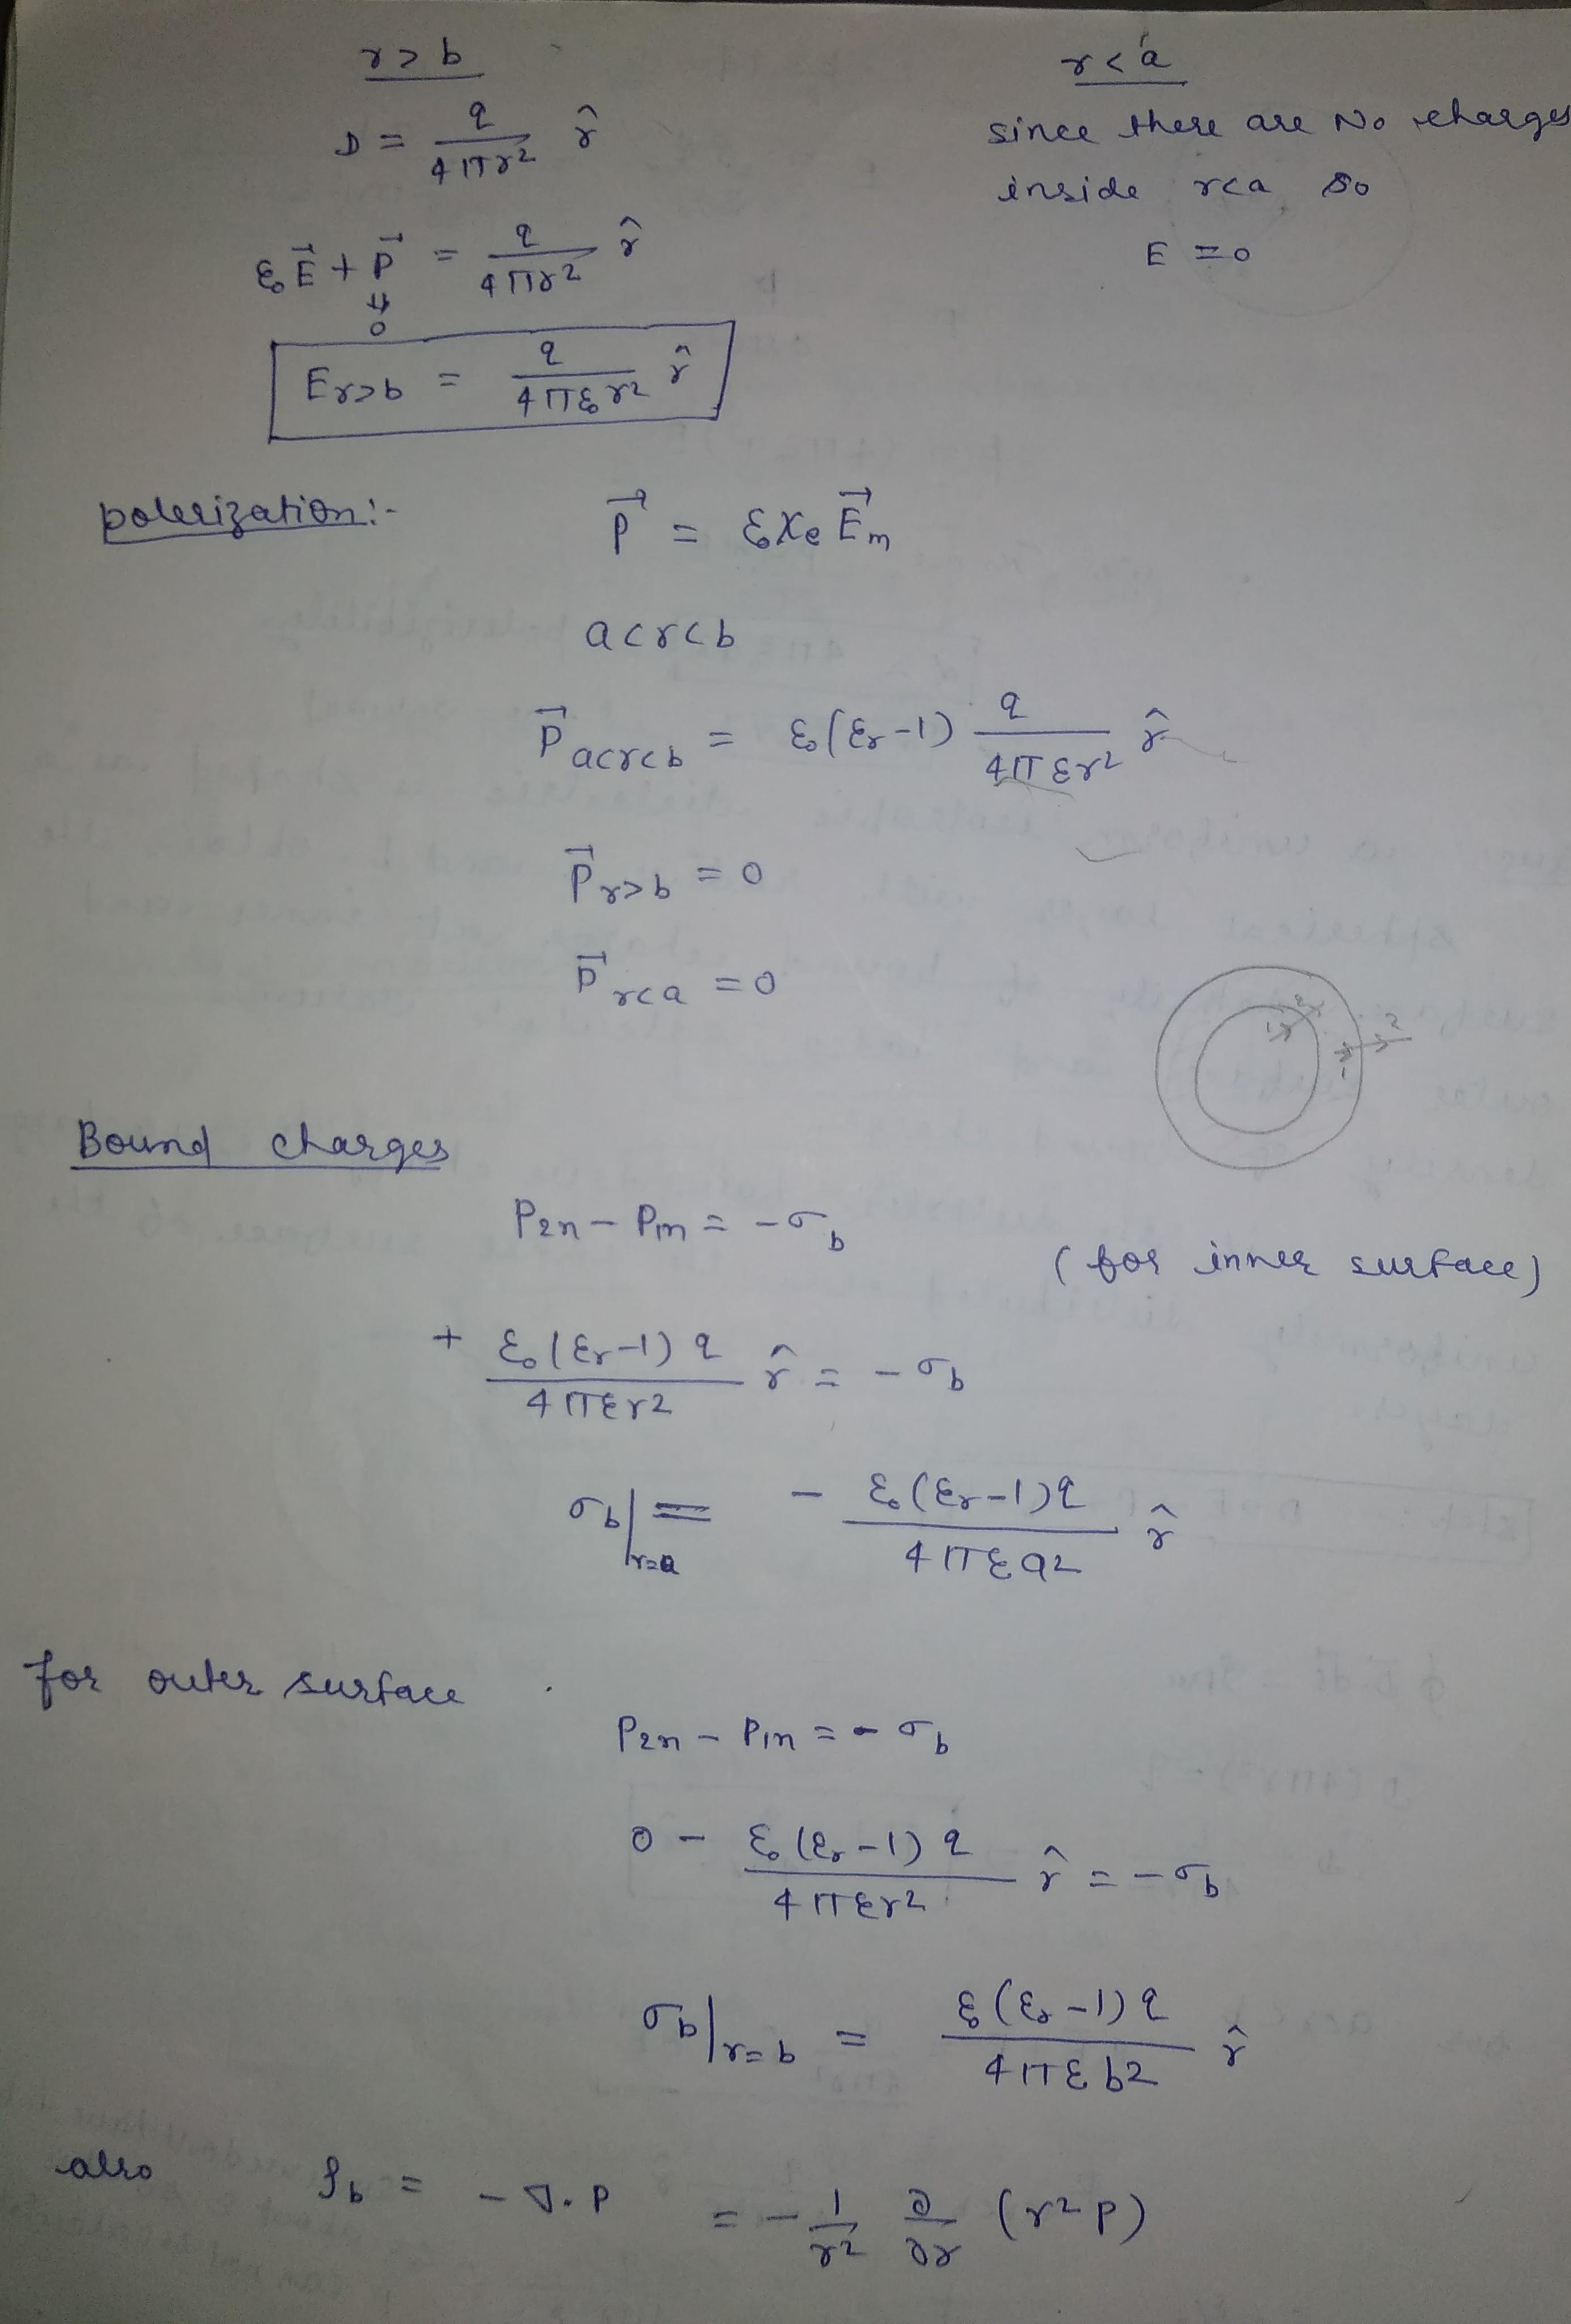 r > b
D = q / 4πr² r̂
ε₀E⃗ + P⃗ = q / 4πr² r̂
⇓
0
E r>b = q / 4πε₀r² r̂
r < a
since there are No charges
inside r<a so
E = 0
polerization:-
P⃗ = ε₀χe E⃗m
a<r<b
P⃗ a<r<b = ε₀(εr-1) q / 4πεr² r̂
P⃗ r>b = 0
P⃗ r<a = 0
1 2
1 2
Bound charges
P2n - P1n = -σb
(for inner surface)
+ ε₀(εr-1) q / 4πεr² r̂ = -σb
σb|r=a = - ε₀(εr-1)q / 4πεa² r̂
for outer surface
P2n - P1n = -σb
0 - ε₀(εr-1) q / 4πεr² r̂ = -σb
σb|r=b = ε₀(εr-1) q / 4πεb² r̂
also ρb = -∇.P = - 1/r² ∂/∂r (r²P)